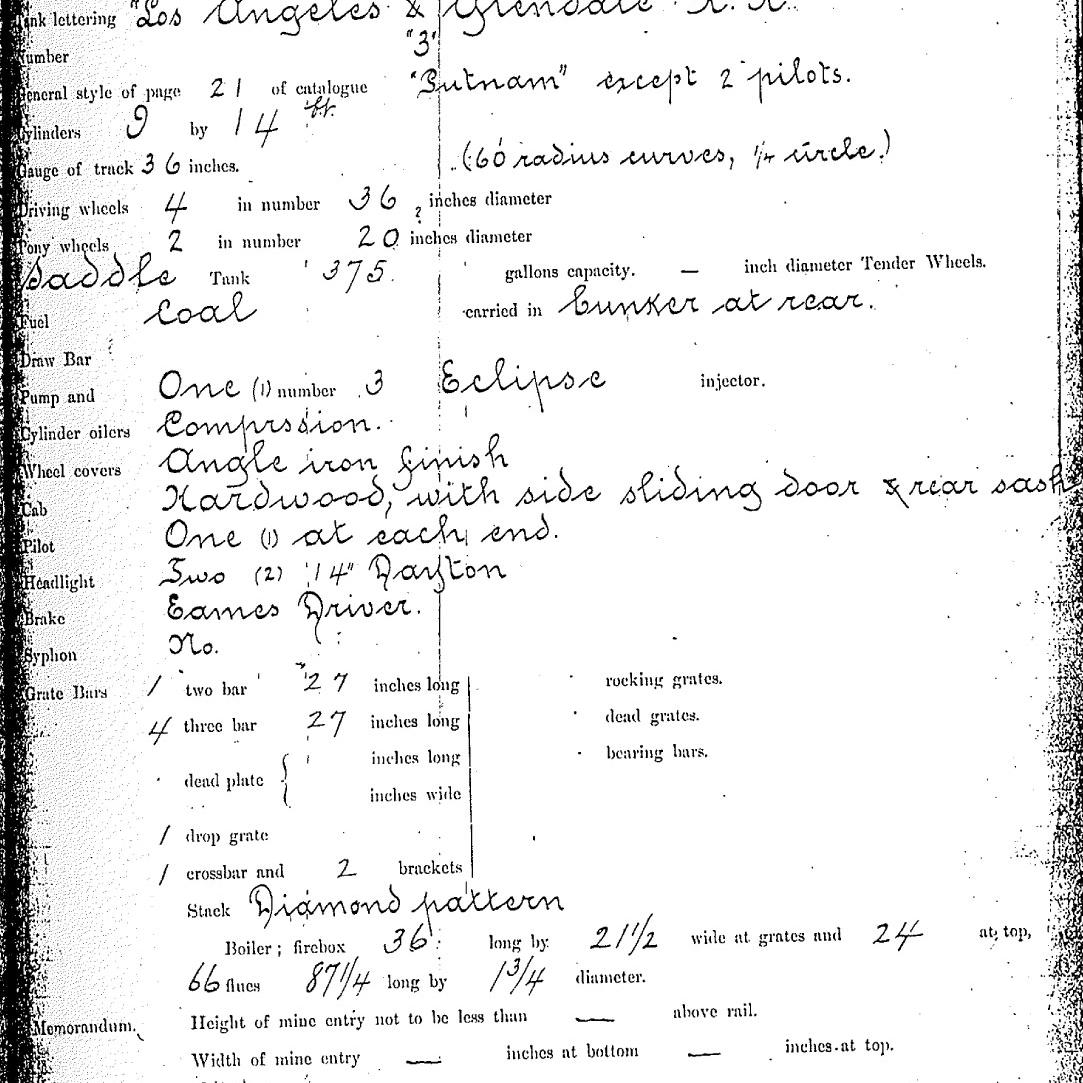 Tank lettering "Los Angeles & Glendale R. R.
Number "3"
General style of page 21 of catalogue "Putnam" except 2 pilots.
Cylinders 9 by 14
Gauge of track 36 inches. (60 radius curves, 1/4 circle.)
Driving wheels 4 in number 36 inches diameter
Pony wheels 2 in number 20 inches diameter
Saddle Tank 375 gallons capacity. — inch diameter Tender Wheels.
Fuel Coal carried in bunker at rear.
Draw Bar
Pump and One (1) number 3 Eclipse injector.
Cylinder oilers Comprssion.
Wheel covers Angle iron finish
Cab Hardwood, with side sliding door & rear sash
Pilot One (1) at each end.
Headlight Two (2) 14" Dayton
Brake Eames Driver.
Syphon No.
Grate Bars 1 two bar 27 inches long rocking grates.
4 three bar 27 inches long dead grates.
dead plate { inches long bearing bars.
inches wide
1 drop grate
1 crossbar and 2 brackets
Stack Diamond pattern
Boiler; firebox 36 long by 21 1/2 wide at grates and 24 at top,
66 flues 87 1/4 long by 1 3/4 diameter.
Memorandum. Height of mine entry not to be less than — above rail.
Width of mine entry — inches at bottom — inches at top.